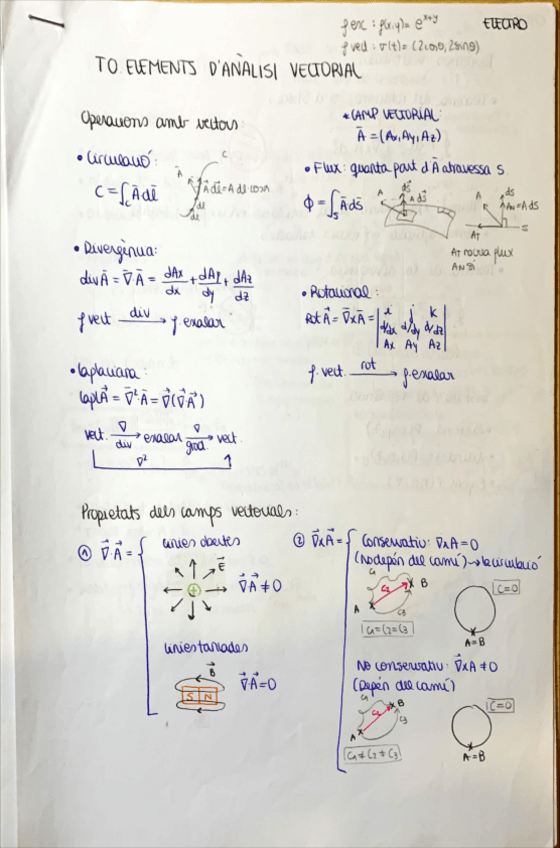 f esc : f(x,y) = e^{x+y}
ELECTRO
f vect : σ(t) = (2cosθ, 2sinθ)
T0. ELEMENTS D'ANÀLISI VECTORIAL
Operacions amb vectors:
* CAMP VECTORIAL:
Ā = (Ax, Ay, Az)
• Circulació:
C = ∫_C Ā dl̄
C
A
Ā dl̄ = A dl cosα
dl
dl
• Flux: quanta part d'Ā atravessa S.
Φ = ∫_S Ā dS̄
A
dS̄
Ā dS̄
A
dS
A_N = A dS
A_T
S
A_T no crea flux
A_N sí
• Divergència:
div Ā = ∇̄ Ā = dAx/dx + dAy/dy + dAz/dz
f vect —div→ f. escalar
• Rotacional:
Rot Ā = ∇̄ x Ā = | i j k
d/dx d/dy d/dz
Ax Ay Az |
f. vect. —rot→ f. escalar
• Laplaciana:
lapl Ā = ∇̄² Ā = ∇̄(∇̄ Ā)
vect. —∇ div→ escalar —∇ grad.→ vect.
∇²
Propietats dels camps vectorials:
① ∇̄·Ā = {
Línies obertes
E̅
+
∇̄ Ā ≠ 0
Línies tancades
B̅
S N
∇̄ Ā = 0
② ∇̄ x Ā = {
Conservatiu: ∇ x A = 0
(No depèn del camí) → la circulació
C₁
C₂
C₃
A
B
C₁ = C₂ = C₃
C = 0
A = B
No conservatiu: ∇̄ x Ā ≠ 0
(Depèn del camí)
C₁
C₂
C₃
A
B
C₁ ≠ C₂ ≠ C₃
C = 0
A = B